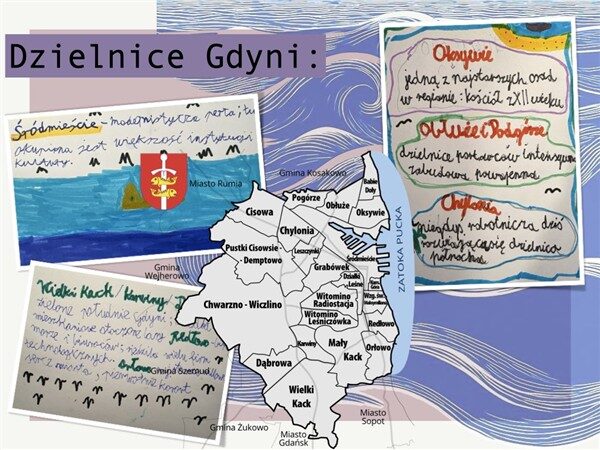 Dzielnice Gdyni:
Śródmieście - modernistyczna perła; tu
skupiona jest większość instytucji
kultury.
Oksywie
jedna z najstarszych osad
w regionie: kościół z XII wieku
Obłuże i Pogórze
dzielnice portowców intensywna
zabudowa powojenna
Chylonia
niegdyś robotnicza dziś
rozwijająca się dzielnica
północna
Wielki Kack / Karwiny
zielone południe Gdyni;
mieszkaniowe otoczone lasy Redłowo
morze i
technologicznych
Orłowo
Miasto Rumia
Gmina Kosakowo
Gmina
Wejherowo
Gmina Szemud
Gmina Żukowo
Miasto
Gdańsk
Miasto
Sopot
ZATOKA PUCKA
Babie
Doły
Pogórze
Obłuże
Oksywie
Cisowa
Chylonia
Leszczynki
Pustki Cisowskie
- Demptowo
Grabówek
Śródmieście
Działki
Leśne
Kamienna
Góra
Wzg. św.
Maksymiliana
Chwarzno - Wiczlino
Witomino
Radiostacja
Witomino
Leśniczówka
Redłowo
Karwiny
Mały
Kack
Orłowo
Dąbrowa
Wielki
Kack